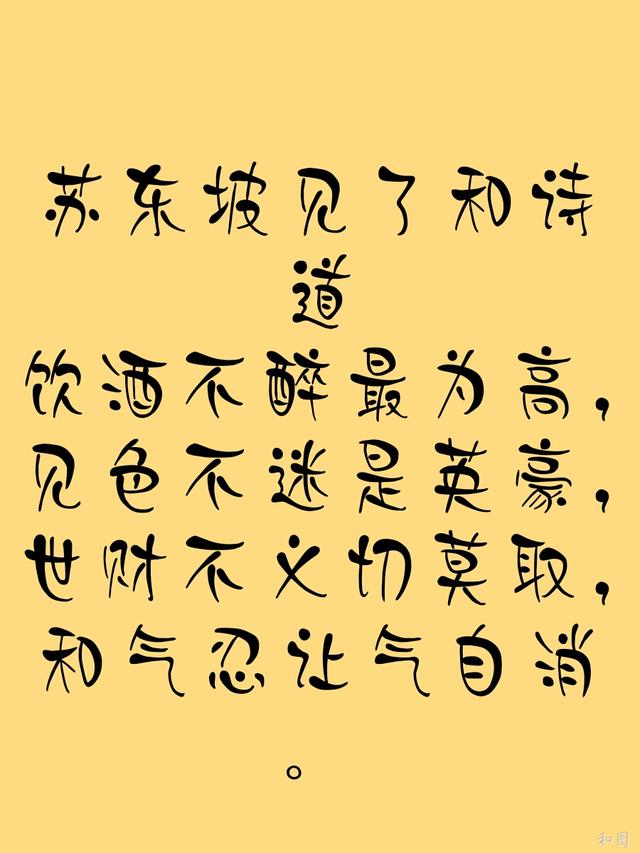 苏东坡见了和诗
道
饮酒不醉最为高，
见色不迷是英豪，
世财不义切莫取，
和气忍让气自消
。
和图